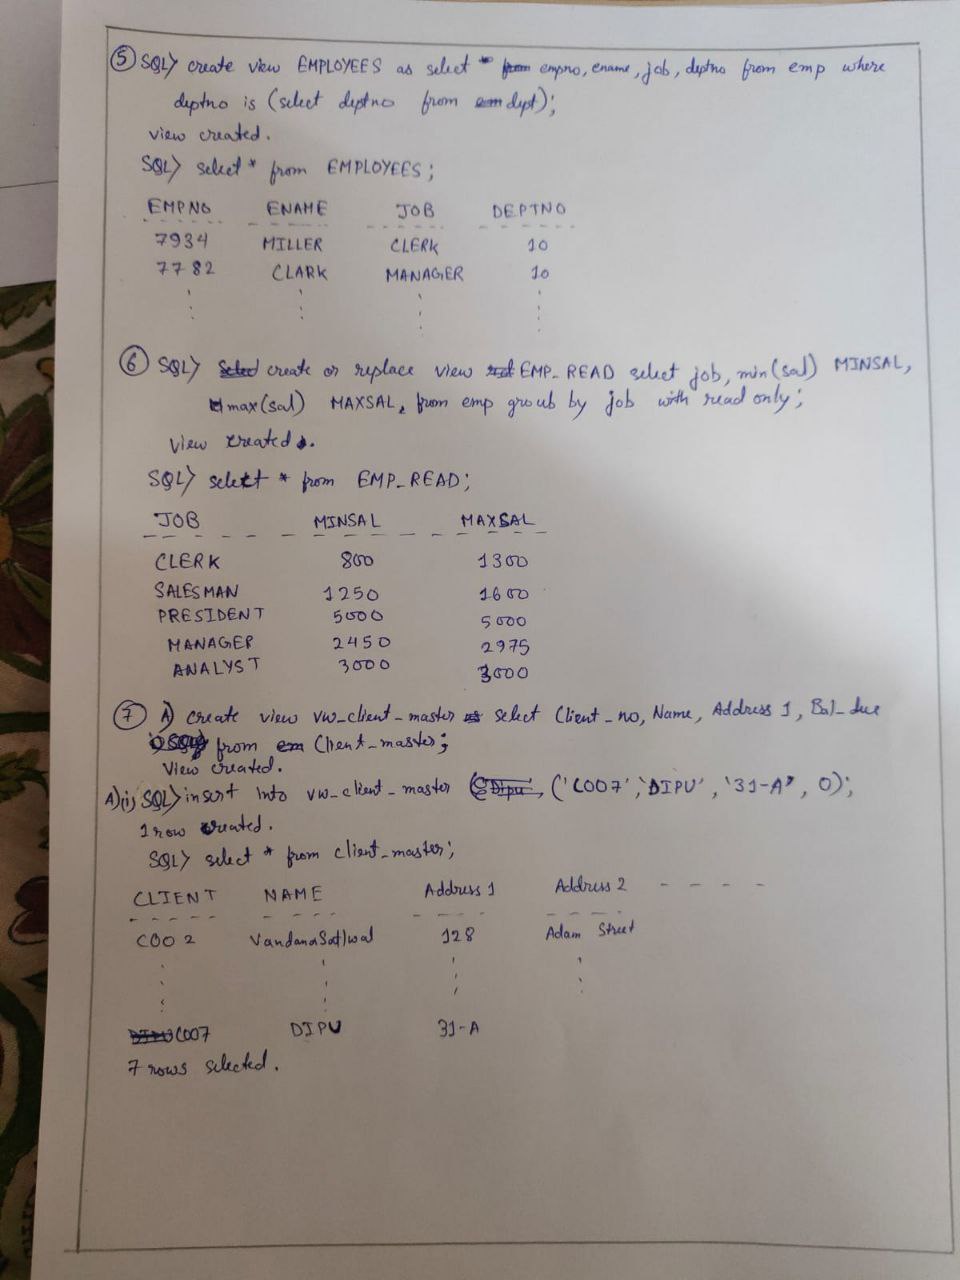 ⑤ SQL> create view EMPLOYEES as select empno, ename, job, deptno from emp where
deptno is (select deptno from dept);
view created.
SQL> select * from EMPLOYEES;
EMPNO ENAME JOB DEPTNO
7934 MILLER CLERK 10
7782 CLARK MANAGER 10
⑥ SQL> create or replace view EMP_READ select job, min(sal) MINSAL,
max(sal) MAXSAL, from emp groub by job with read only;
view created.
SQL> select * from EMP_READ;
JOB MINSAL MAXSAL
CLERK 800 1300
SALESMAN 1250 1600
PRESIDENT 5000 5000
MANAGER 2450 2975
ANALYST 3000 3000
⑦ A) create view vw_client_master select Client_no, Name, Address 1, Bal_due
from Client_master;
View created.
A)(i) SQL> insert into vw_client_master ('C007', 'DIPU', '31-A', 0);
1 row created.
SQL> select * from client_master;
CLIENT NAME Address 1 Address 2 - - - -
C002 Vandana 128 Adam Street
C007 DIPU 31-A
7 rows selected.